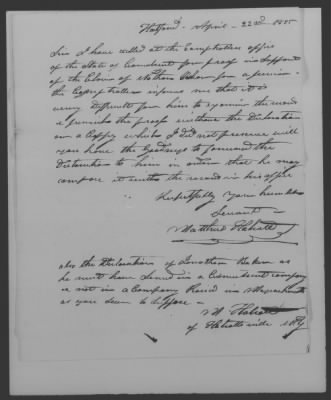 Hartford April 22nd 1835
Sir I have called at the Comptrollers office
of the State of Connecticut for proof in support
of the Claim of Nathan Baker for a pension
the Comptroller informs me that it is
very difficult for him to examine the record
& furnish the proof without the Declaration
or a Coppy which I did not presence will
you have the Goodness to forward the
Declaration to him in order that he may
compare it with the record in his office
Respectfully your humble
Servant
Matthew
also the Declaration of Jonathan Baker as
he must have served in a Connecticut company
& not in a Company Raised in Massachusetts
as you seem to suppose
M
of